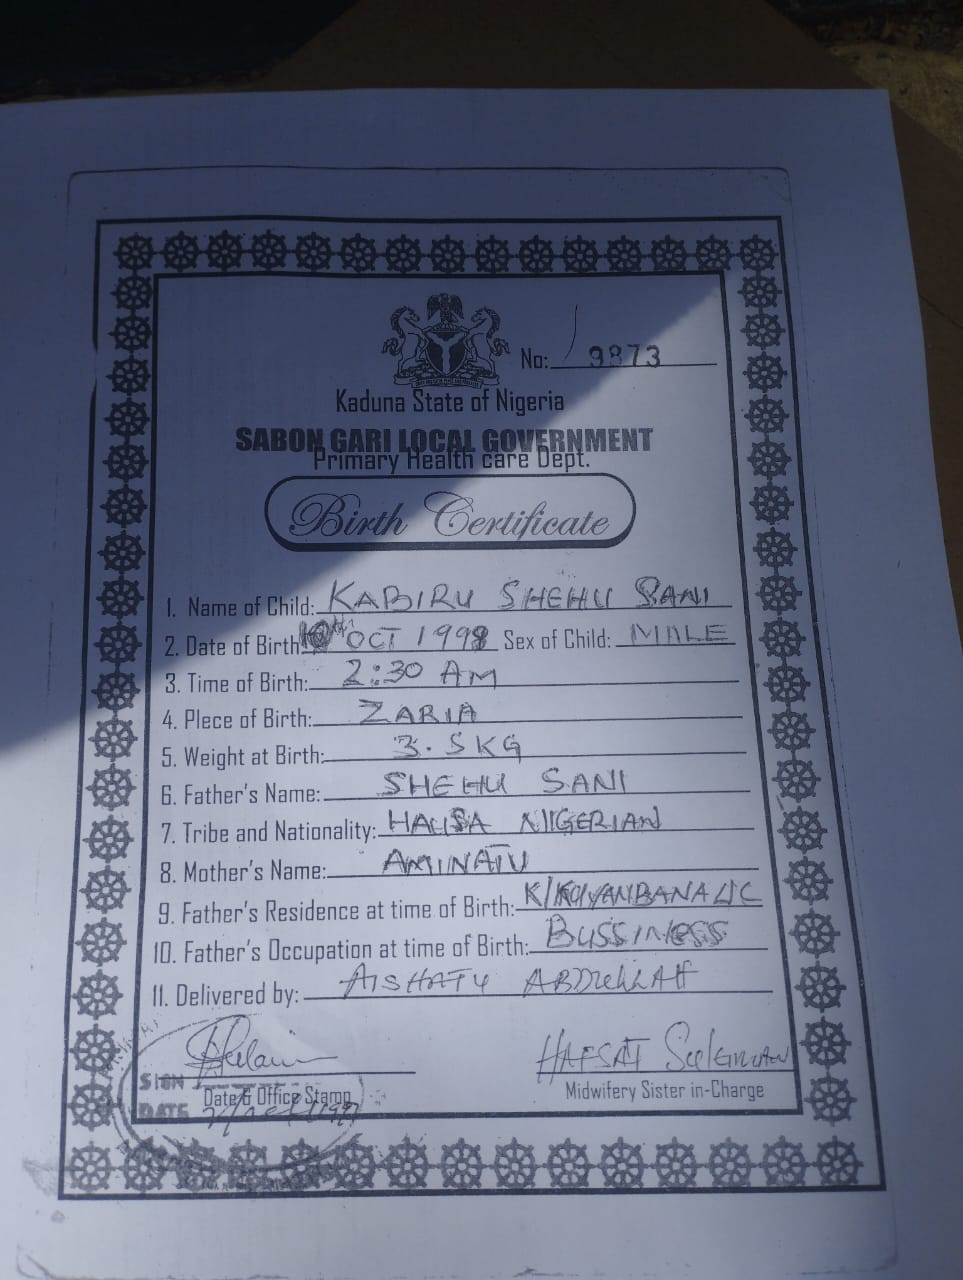 No: 9873
Kaduna State of Nigeria
SABON GARI LOCAL GOVERNMENT
Primary Health care Dept.
Birth Certificate
1. Name of Child: KABIRU SHEHU SANI
2. Date of Birth: 10th OCT 1998 Sex of Child: MALE
3. Time of Birth: 2:30 AM
4. Plece of Birth: ZARIA
5. Weight at Birth: 3.5KG
6. Father's Name: SHEHU SANI
7. Tribe and Nationality: HAUSA NIGERIAN
8. Mother's Name: AMINATU
9. Father's Residence at time of Birth:
10. Father's Occupation at time of Birth: BUSSINESS
11. Delivered by: AISHATU ABDULLAH
HAFSAT Suleman
SIGN
Date & Office Stamp Midwifery Sister in-Charge
DATE